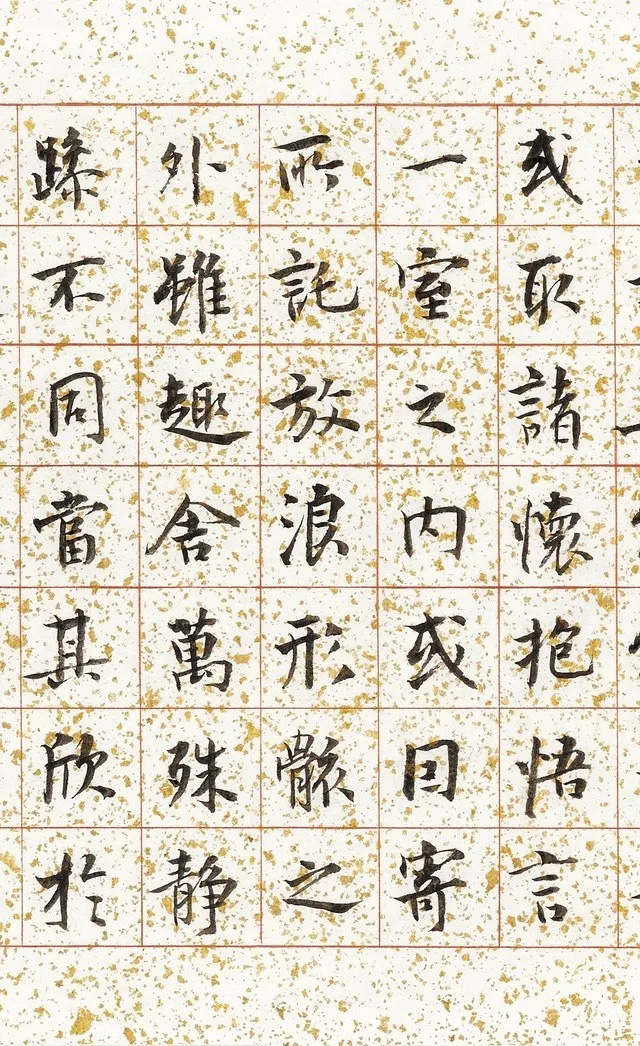 或取諸懷抱悟言
一室之内或因寄
所託放浪形骸之
外雖趣舍萬殊静
躁不同當其欣於